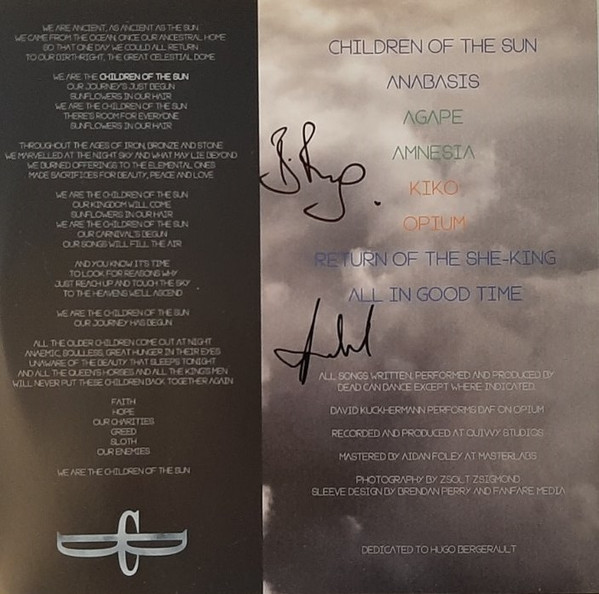 WE ARE ANCIENT, AS ANCIENT AS THE SUN
WE CAME FROM THE OCEAN, ONCE OUR ANCESTRAL HOME
SO THAT ONE DAY WE COULD ALL RETURN
TO OUR BIRTHRIGHT, THE GREAT CELESTIAL DOME
WE ARE THE CHILDREN OF THE SUN
OUR JOURNEY'S JUST BEGUN
SUNFLOWERS IN OUR HAIR
WE ARE THE CHILDREN OF THE SUN
THERE'S ROOM FOR EVERYONE
SUNFLOWERS IN OUR HAIR
THROUGHOUT THE AGES OF IRON, BRONZE AND STONE
WE MARVELLED AT THE NIGHT SKY AND WHAT MAY LIE BEYOND
WE BURNED OFFERINGS TO THE ELEMENTAL ONES
MADE SACRIFICES FOR BEAUTY, PEACE AND LOVE
WE ARE THE CHILDREN OF THE SUN
OUR KINGDOM WILL COME
SUNFLOWERS IN OUR HAIR
WE ARE THE CHILDREN OF THE SUN
OUR CARNIVAL'S BEGUN
OUR SONGS WILL FILL THE AIR
AND YOU KNOW IT'S TIME
TO LOOK FOR REASONS WHY
JUST REACH UP AND TOUCH THE SKY
TO THE HEAVENS WE'LL ASCEND
WE ARE THE CHILDREN OF THE SUN
OUR JOURNEY HAS BEGUN
ALL THE OLDER CHILDREN COME OUT AT NIGHT
ANAEMIC, SOULLESS, GREAT HUNGER IN THEIR EYES
UNAWARE OF THE BEAUTY THAT SLEEPS TONIGHT
AND ALL THE QUEEN'S HORSES AND ALL THE KING'S MEN
WILL NEVER PUT THESE CHILDREN BACK TOGETHER AGAIN
FAITH
HOPE
OUR CHARITIES
GREED
SLOTH
OUR ENEMIES
WE ARE THE CHILDREN OF THE SUN
CHILDREN OF THE SUN
ANABASIS
AGAPE
AMNESIA
KIKO
OPIUM
RETURN OF THE SHE-KING
ALL IN GOOD TIME
ALL SONGS WRITTEN, PERFORMED AND PRODUCED BY
DEAD CAN DANCE EXCEPT WHERE INDICATED.
DAVID KUCKHERMANN PERFORMS DAF ON OPIUM
RECORDED AND PRODUCED AT QUIVVY STUDIOS
MASTERED BY AIDAN FOLEY AT MASTERLABS
PHOTOGRAPHY BY ZSOLT ZSIGMOND
SLEEVE DESIGN BY BRENDAN PERRY AND FANFARE MEDIA
DEDICATED TO HUGO BERGERAULT